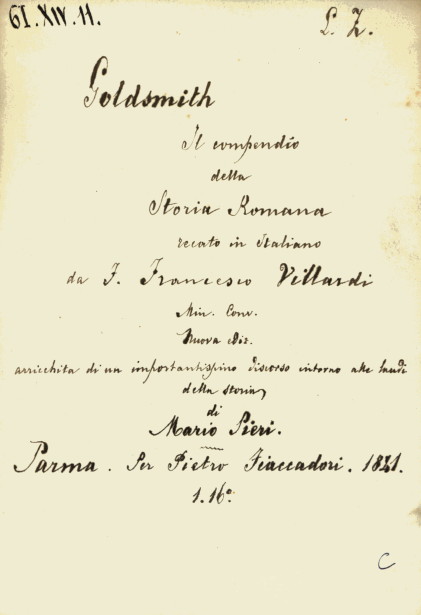 61.XIV.11.
L. Z.
Goldsmith
Il compendio
della
Storia Romana
recato in Italiano
da F. Francesco Villardi
Min. Conv.
Nuova ediz.
arricchita di un importantissimo discorso intorno alle laudi
della storia
di
Mario Pieri.
Parma. Per Pietro Fiaccadori. 1841.
1. 16º
C